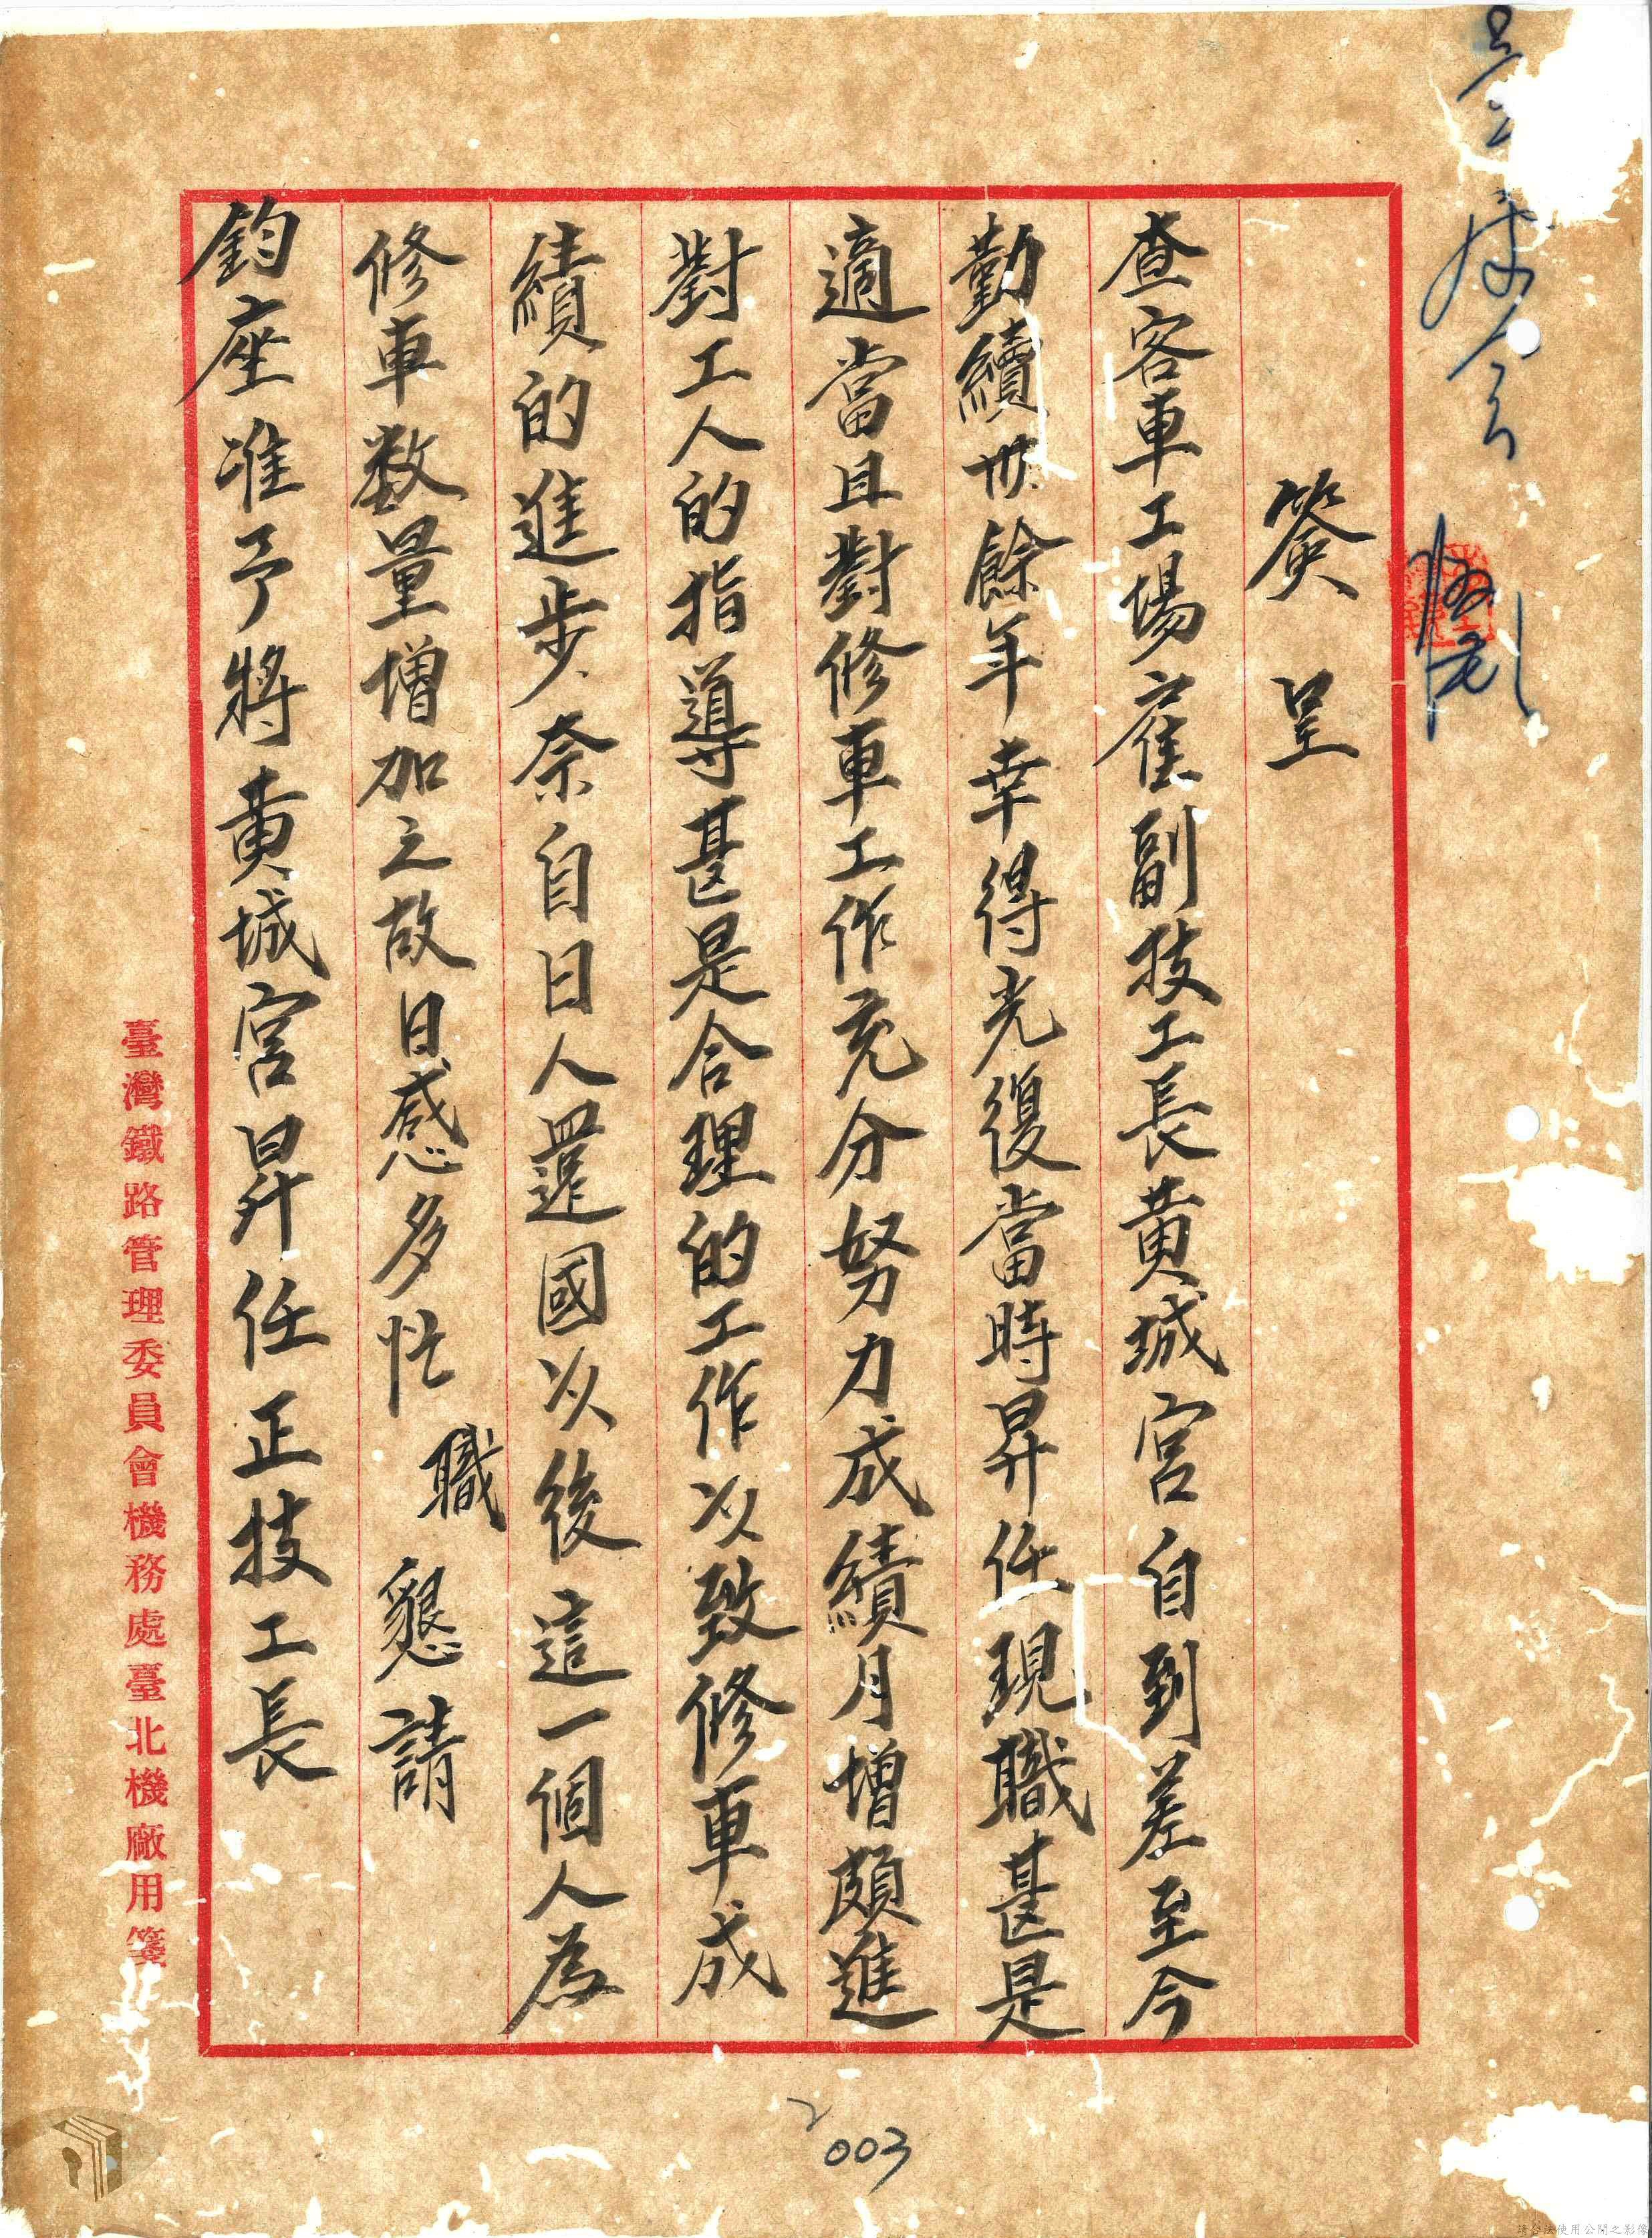 簽呈
查客車工場雇副技工長黃城宮自到差至今
勤續卅餘年幸得光復當時昇任現職甚是
適當且對修車工作充分努力成績月增頗進
對工人的指導甚是合理的工作以致修車成
績的進步奈自日人還國以後這一個人為
修車数量增加之故日感多忙 職 懇請
鈞座准予將黃城宮昇任正技工長
臺灣鐵路管理委員會機務處臺北機廠用箋
003
請合法使用公開之影像